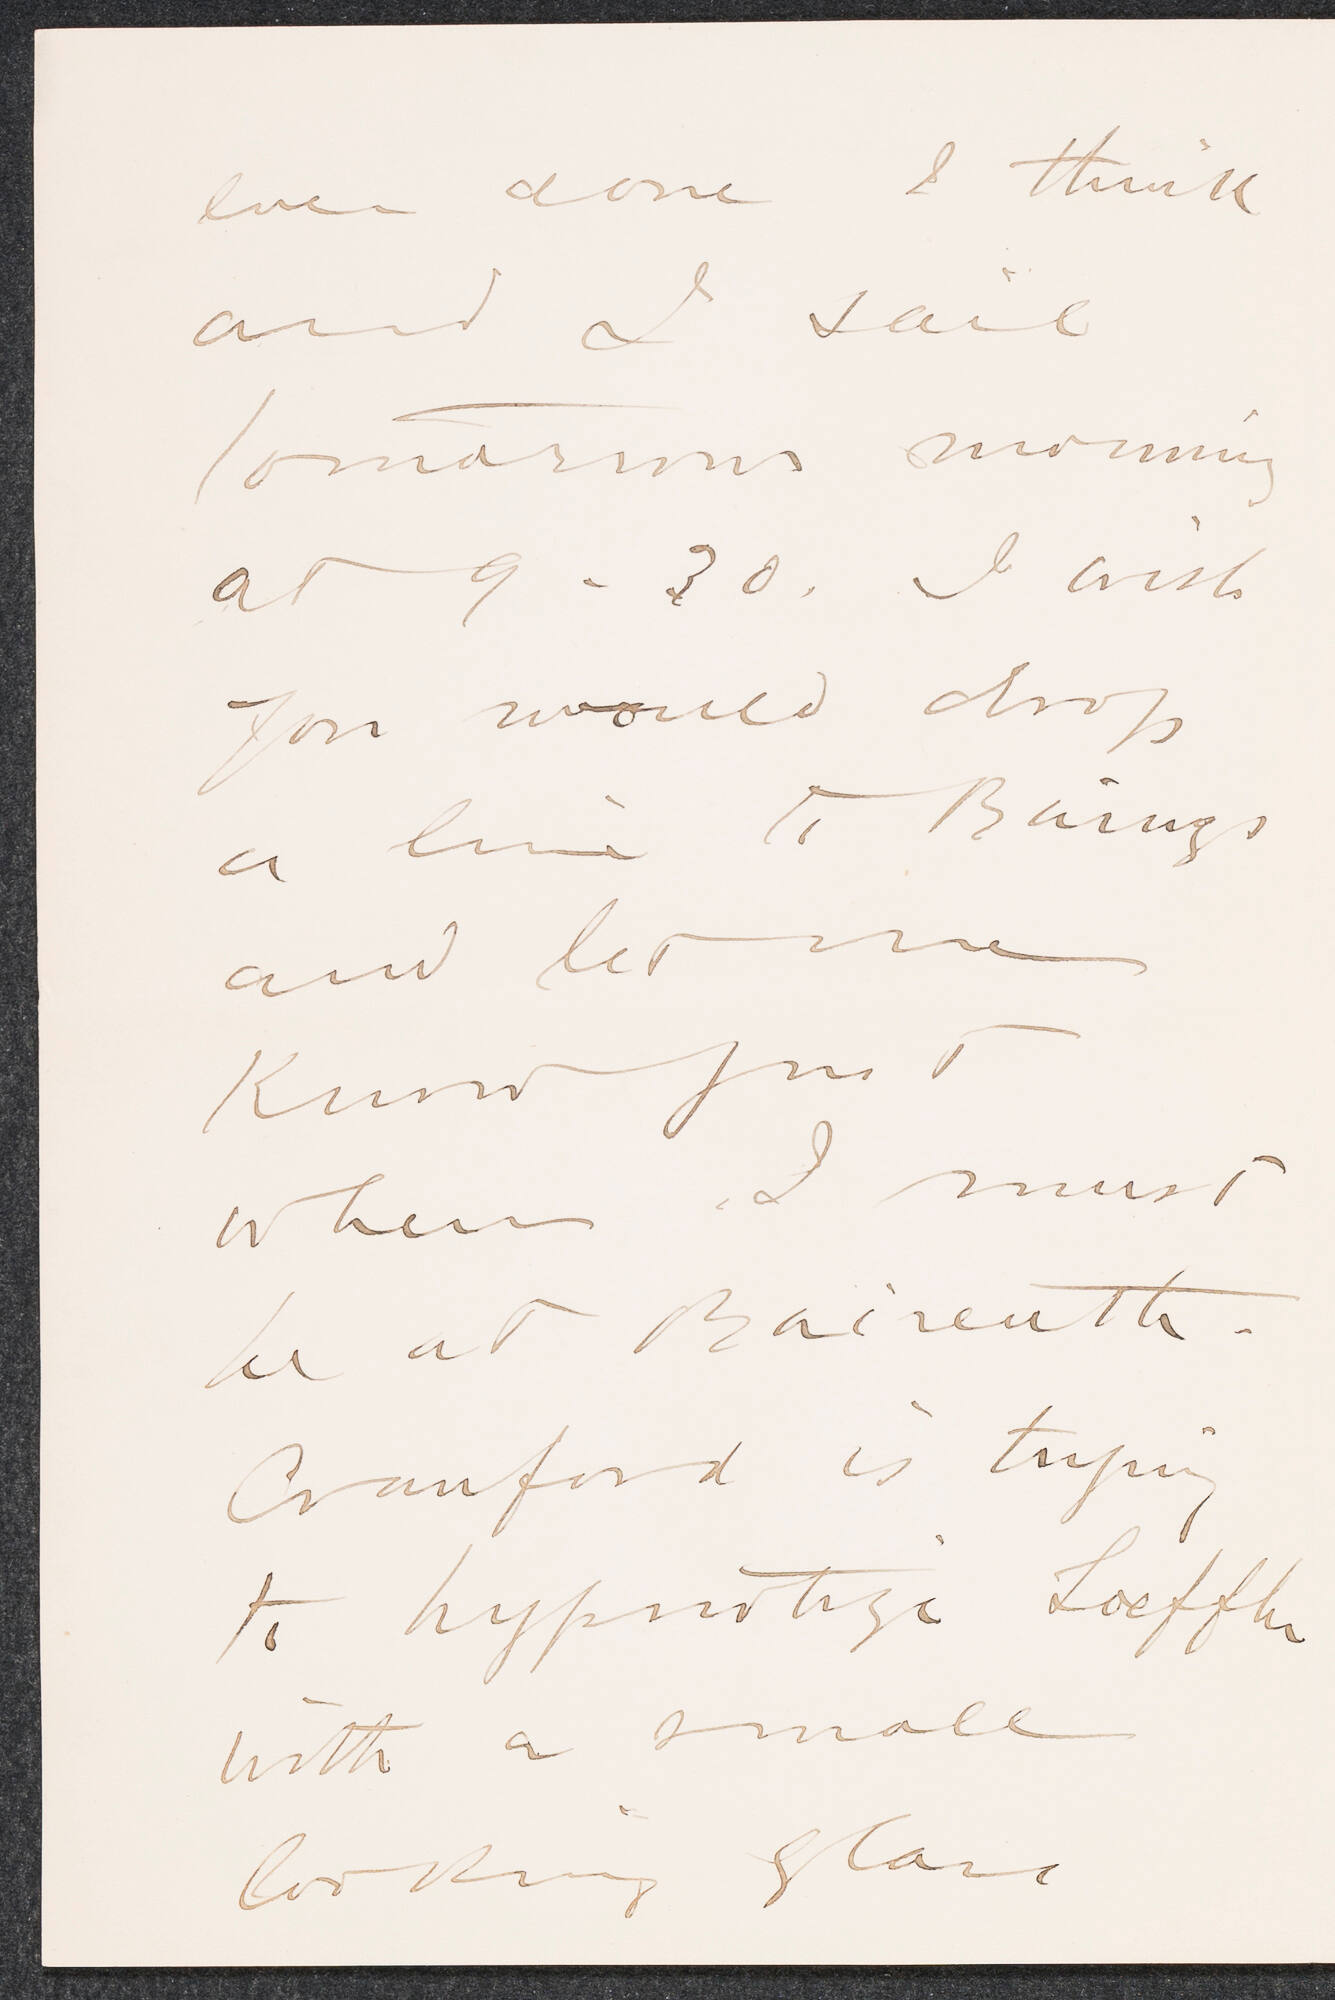 ever done I think
and I sail
tomorrow morning
at 9-30. I wish
you would drop
a line to Barings
and let me
Know just
when I must
be at Baireuth-
Crawford is trying
to hypnotize Loeffler
with a small
looking glass